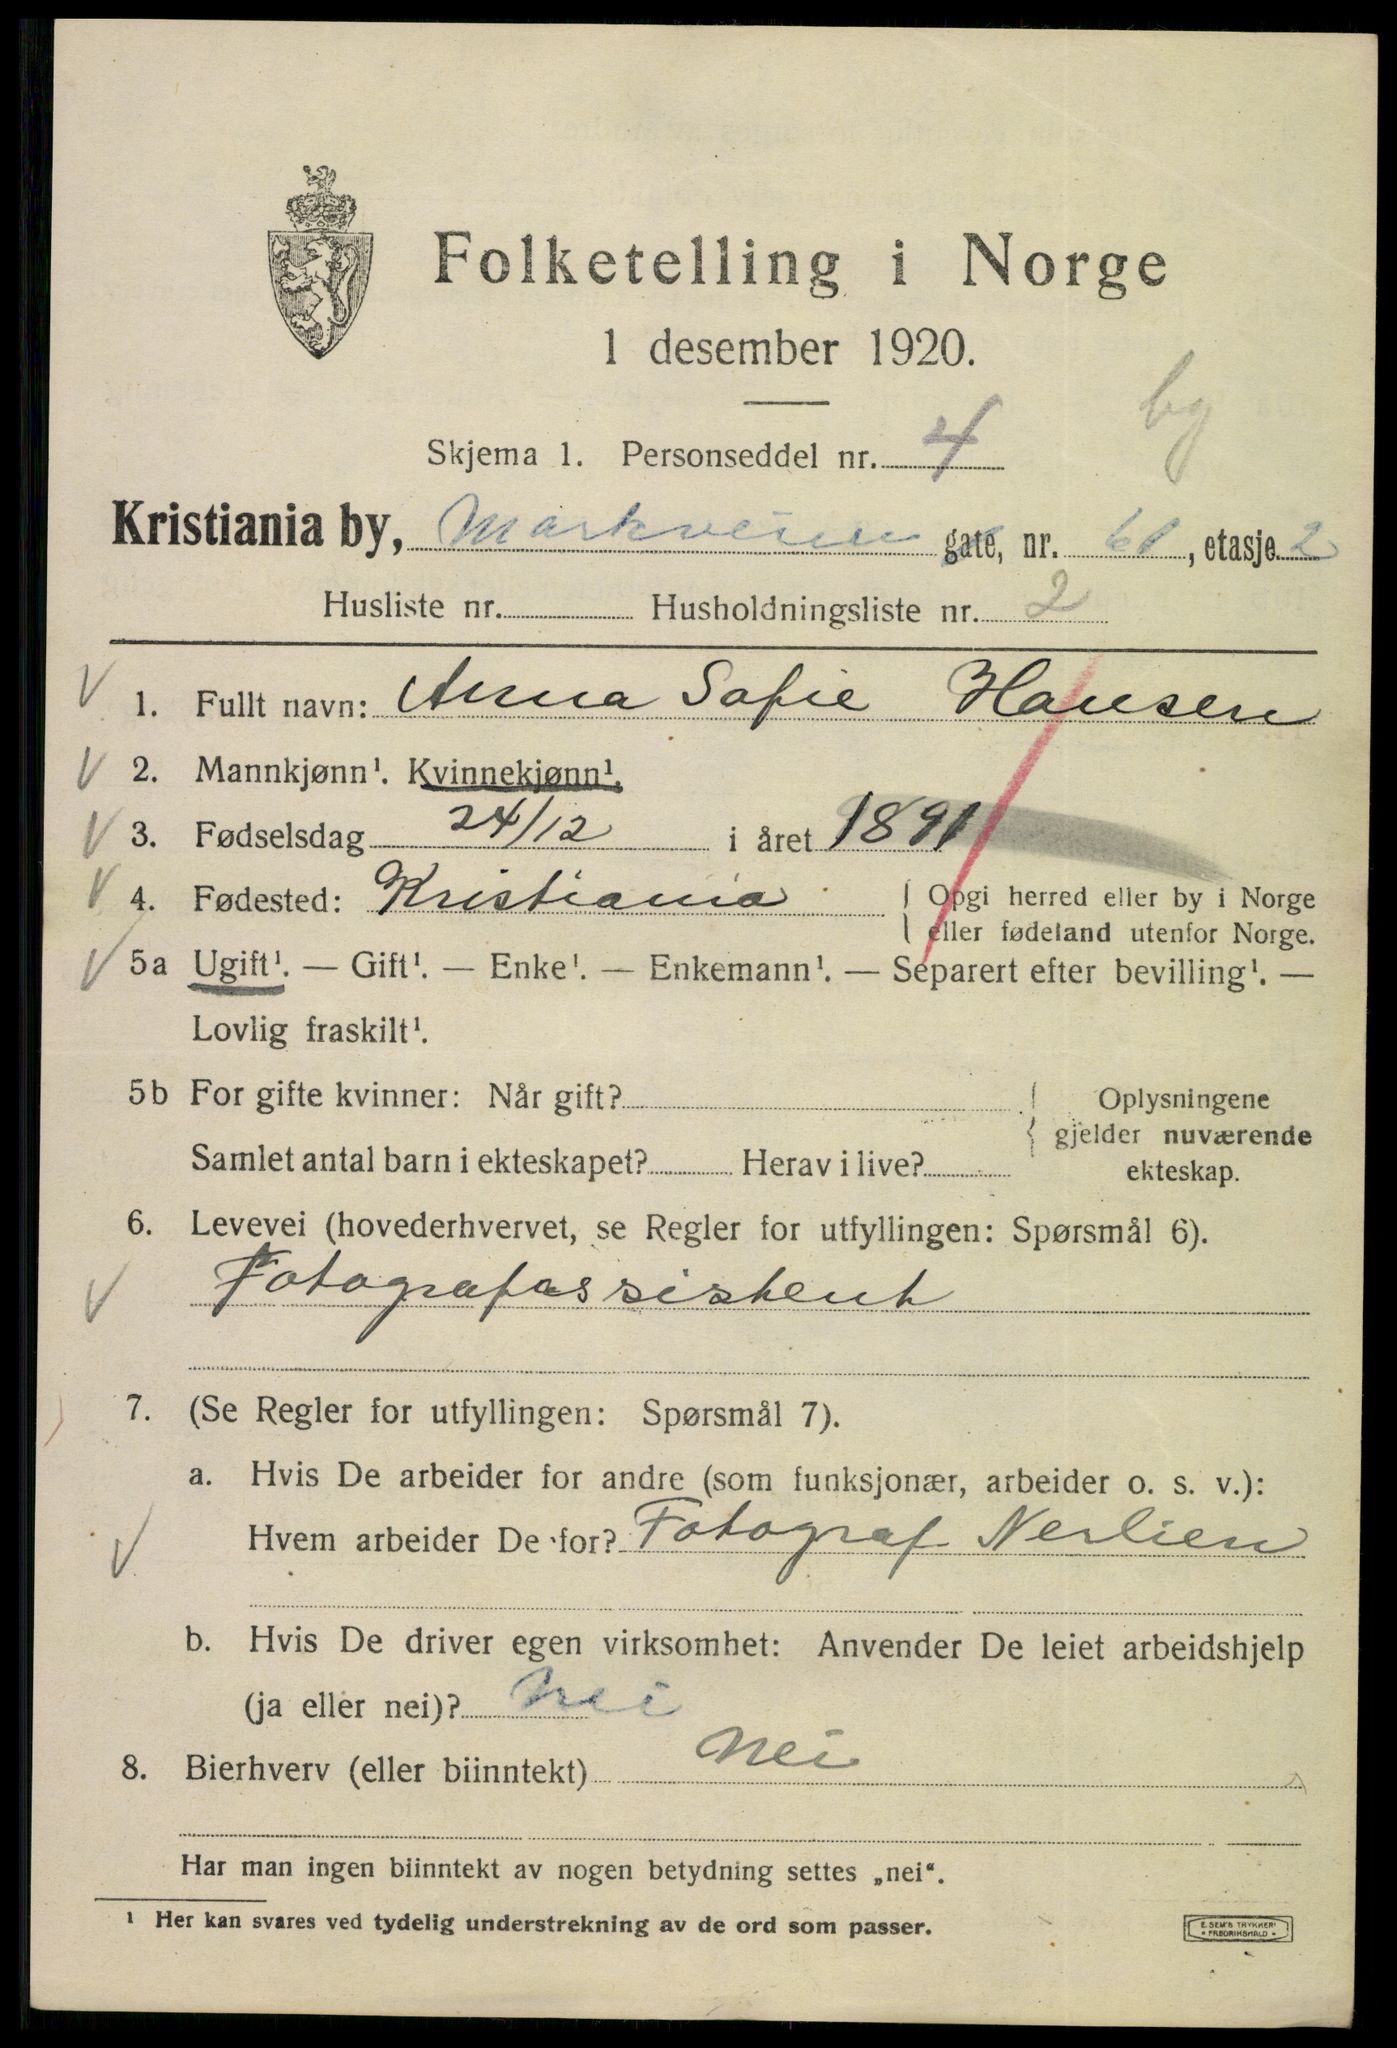 Folketelling i Norge
1 desember 1920.
by
Skjema 1. Personseddel nr. 4
Kristiania by, Markveien gate, nr. 61, etasje 2
Husliste nr. Husholdningsliste nr. 2
1. Fullt navn: Anna Sofie Hansen
2. Mannkjønn¹. Kvinnekjønn¹.
3. Fødselsdag 24/12 i året 1891
4. Fødested: Kristiania { Opgi herred eller by i Norge
eller fødeland utenfor Norge.
5a Ugift¹. — Gift¹. — Enke¹. — Enkemann¹. — Separert efter bevilling¹. —
Lovlig fraskilt¹.
5b For gifte kvinner: Når gift? { Oplysningene
gjelder nuværende
Samlet antal barn i ekteskapet? Herav i live? ekteskap.
6. Levevei (hovederhvervet, se Regler for utfyllingen: Spørsmål 6).
Fotografassistent
7. (Se Regler for utfyllingen: Spørsmål 7).
a. Hvis De arbeider for andre (som funksjonær, arbeider o. s. v.):
Hvem arbeider De for? Fotograf Nerlien
b. Hvis De driver egen virksomhet: Anvender De leiet arbeidshjelp
(ja eller nei)? Nei
8. Bierhverv (eller biinntekt) Nei
Har man ingen biinntekt av nogen betydning settes „nei“.
¹ Her kan svares ved tydelig understrekning av de ord som passer.
E. SEM'S TRYKKERI
• FREDRIKSHALD •